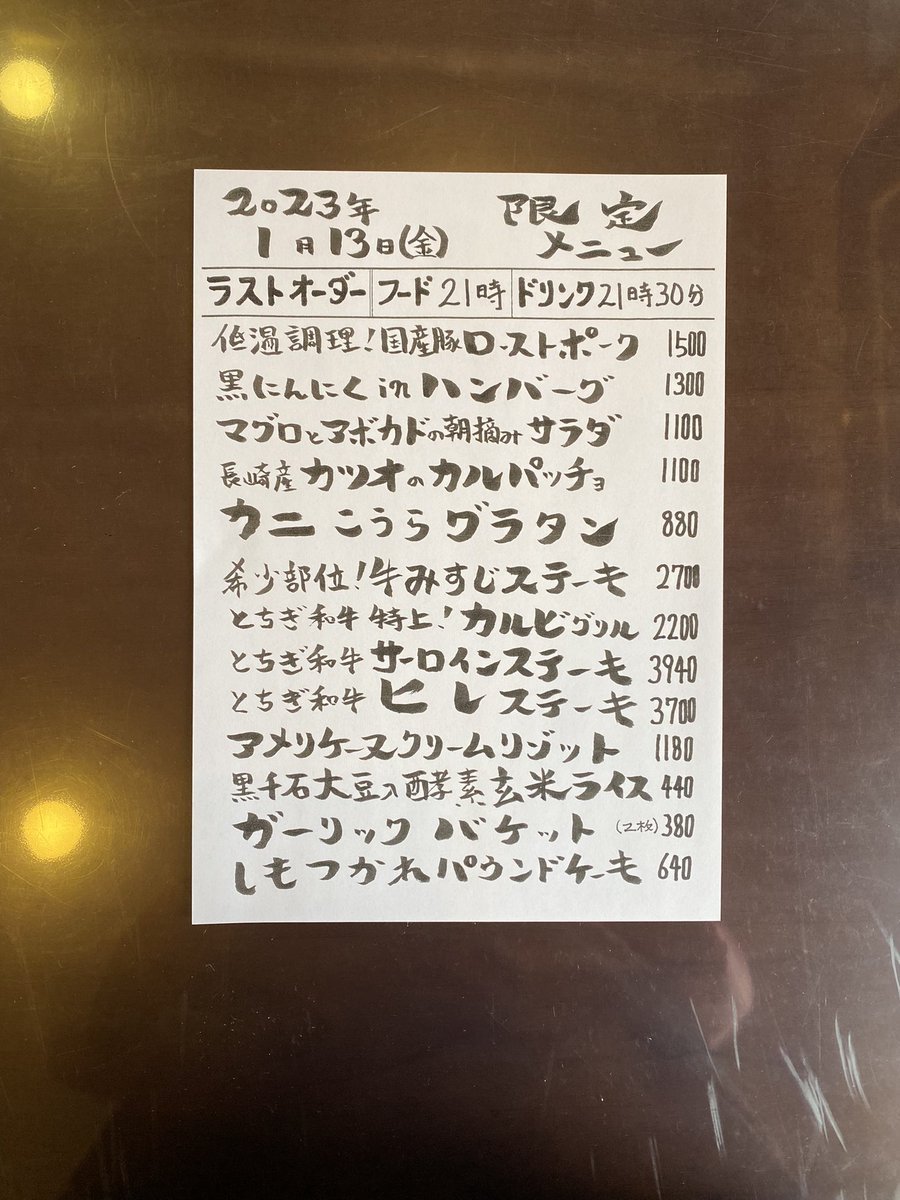 2023年
1月13日(金)
限定
メニュー
ラストオーダー フード21時 ドリンク21時30分
低温調理!国産豚ローストポーク 1500
黒にんにくinハンバーグ 1300
マグロとアボカドの朝摘みサラダ 1100
長崎産カツオのカルパッチョ 1100
カニこうらグラタン 880
希少部位!牛みすじステーキ 2700
とちぎ和牛特上!カルビグリル 2200
とちぎ和牛サーロインステーキ 3940
とちぎ和牛ヒレステーキ 3700
アメリケーヌクリームリゾット 1180
黒千石大豆入酵素玄米ライス 440
ガーリックバケット (2枚) 380
しもつかれパウンドケーキ 640